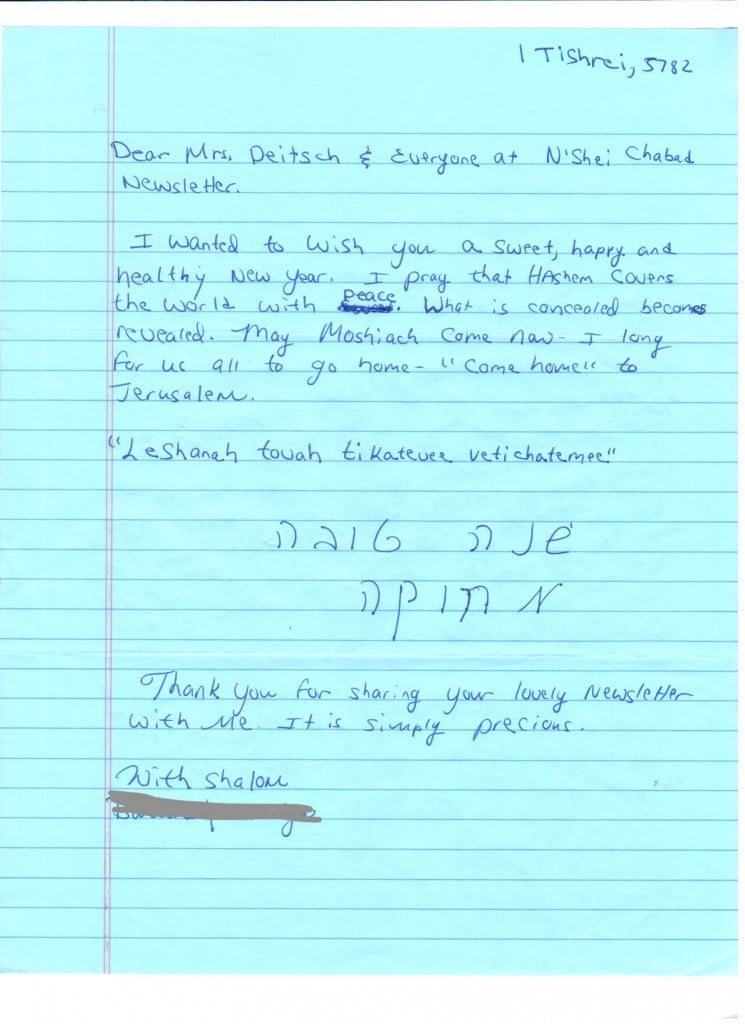 1 Tishrei, 5782
Dear Mrs. Deitsch & Everyone at N'Shei Chabad
Newsletter.
I wanted to wish you a sweet, happy and
healthy New Year. I pray that HAshem covers
the world with Peace. What is concealed becomes
revealed. May Moshiach come now - I long
for us all to go home - "Come home" to
Jerusalem.
"Leshanah tovah tikatevee vetichatemee"
שנה טובה
מתוקה
Thank you for sharing your lovely Newsletter
with me. It is simply precious.
With Shalom